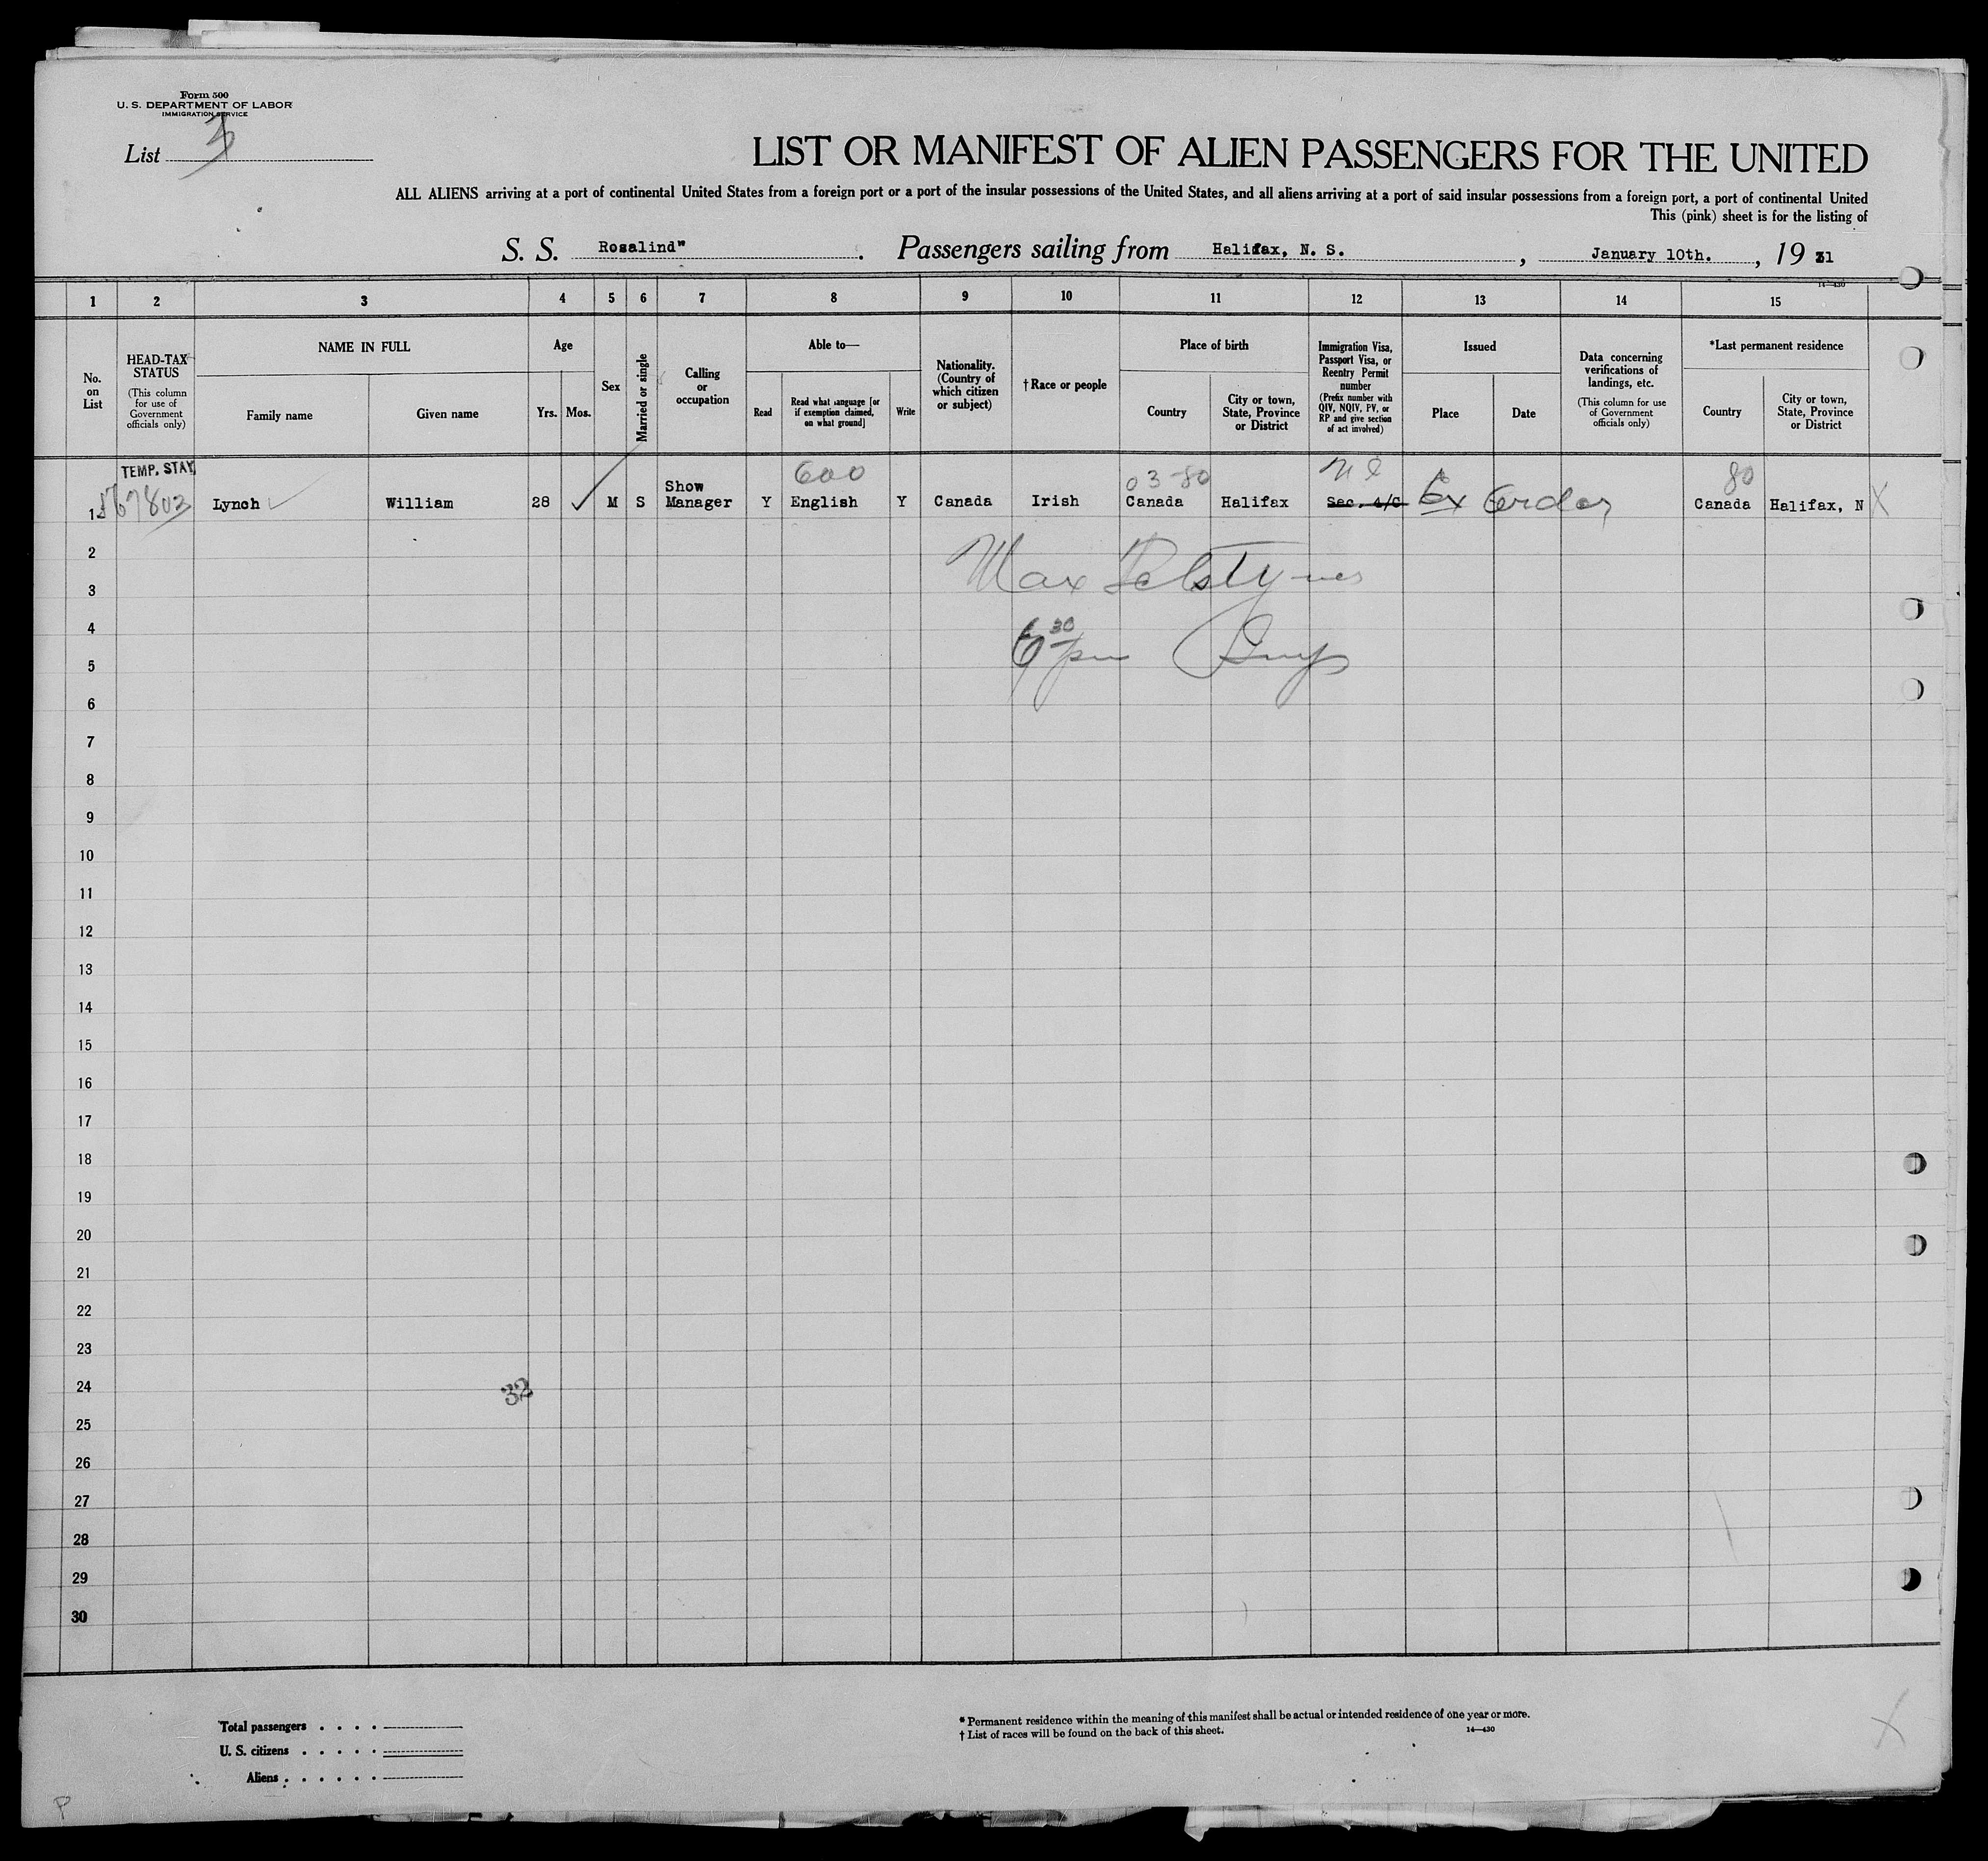 Form 500
U. S. DEPARTMENT OF LABOR
IMMIGRATION SERVICE
List 3
LIST OR MANIFEST OF ALIEN PASSENGERS FOR THE UNITED
ALL ALIENS arriving at a port of continental United States from a foreign port or a port of the insular possessions of the United States, and all aliens arriving at a port of said insular possessions from a foreign port, a port of continental United
This (pink) sheet is for the listing of
S. S. Rosalind" . Passengers sailing from Halifax, N. S. , January 10th. , 19 31
14—430
1 2 3 4 5 6 7 8 9 10 11 12 13 14 15
No. on List
HEAD-TAX STATUS
(This column for use of Government officials only)
NAME IN FULL
Family name
Given name
Age
Yrs.
Mos.
Sex
Married or single
Calling or occupation
Able to—
Read
Read what language [or if exemption claimed, on what ground]
Write
Nationality. (Country of which citizen or subject)
†Race or people
Place of birth
Country
City or town, State, Province or District
Immigration Visa, Passport Visa, or Reentry Permit number
(Prefix number with QIV, NQIV, PV, or RP and give section of act involved)
Issued
Place
Date
Data concerning verifications of landings, etc.
(This column for use of Government officials only)
*Last permanent residence
Country
City or town, State, Province or District
TEMP. STAY 600 03-80 80
1 67803 Lynch William 28 M S Show Manager Y English Y Canada Irish Canada Halifax Sec. 4/C Ex Order Canada Halifax, N X
2
Max
3
4
6 30 pm
5
6
7
8
9
10
11
12
13
14
15
16
17
18
19
20
21
22
23
24
32
25
26
27
28
29
30
Total passengers
U. S. citizens
Aliens
* Permanent residence within the meaning of this manifest shall be actual or intended residence of one year or more.
† List of races will be found on the back of this sheet.
14—430
X
P